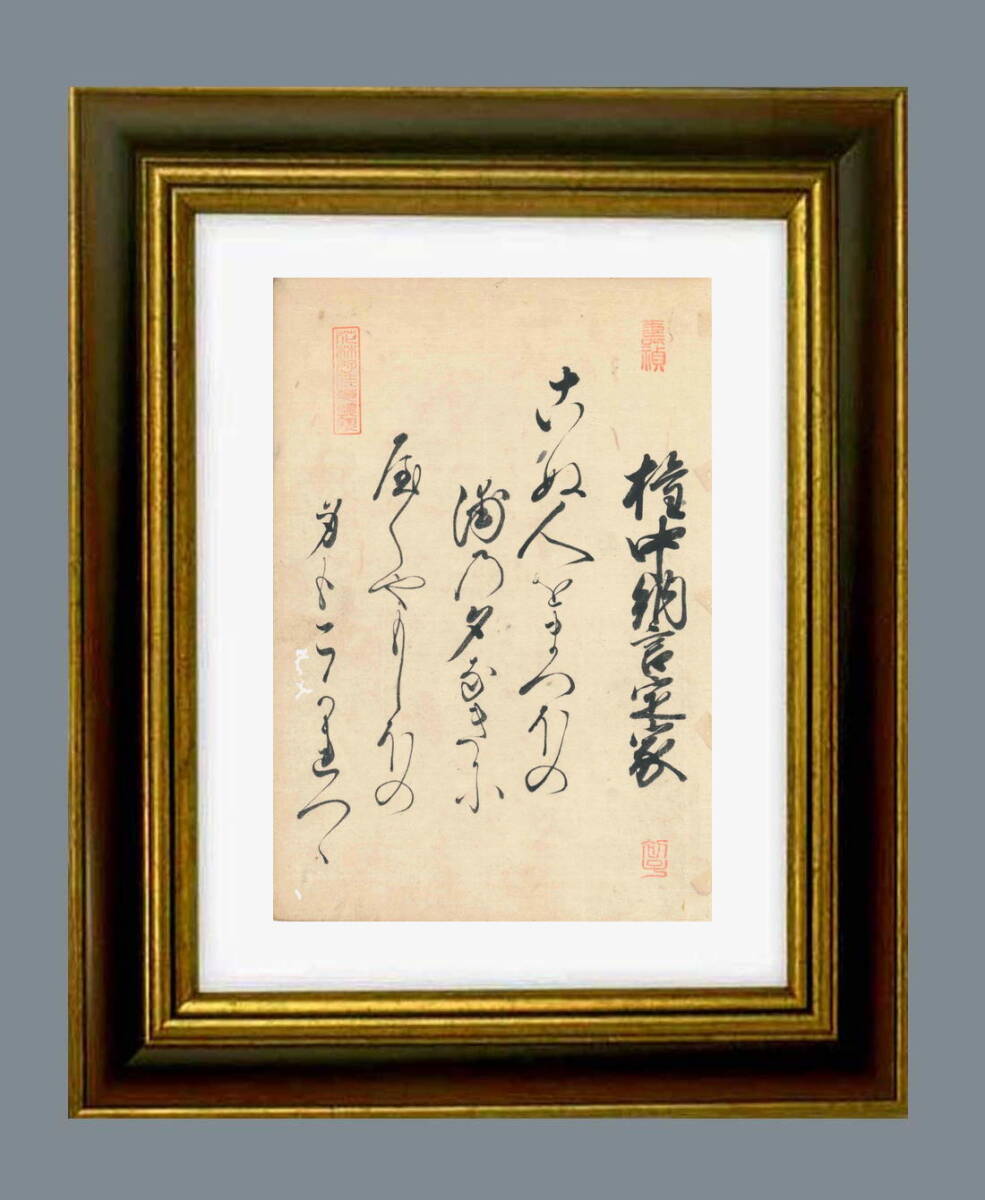 権中納言定家
こぬ人をまつほの
浦乃夕なきに
屋くやもしほの
身もこかれつゝ